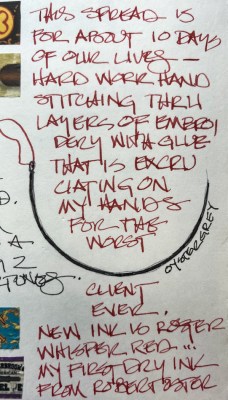 THIS SPREAD IS
FOR ABOUT 10 DAYS
OF OUR LIVES —
HARD WORK HAND
STITCHING THRU
LAYERS OF EMBROI
DERY WITH GLUE
THAT IS EXCRU
CIATING ON
MY HANDS
FOR THE
WORST
OYSTER GREY
CLIENT
EVER.
NEW INK IS ROSTER
WHISPER RED !!!
MY FIRST DRY INK
FROM ROBERT OSTER